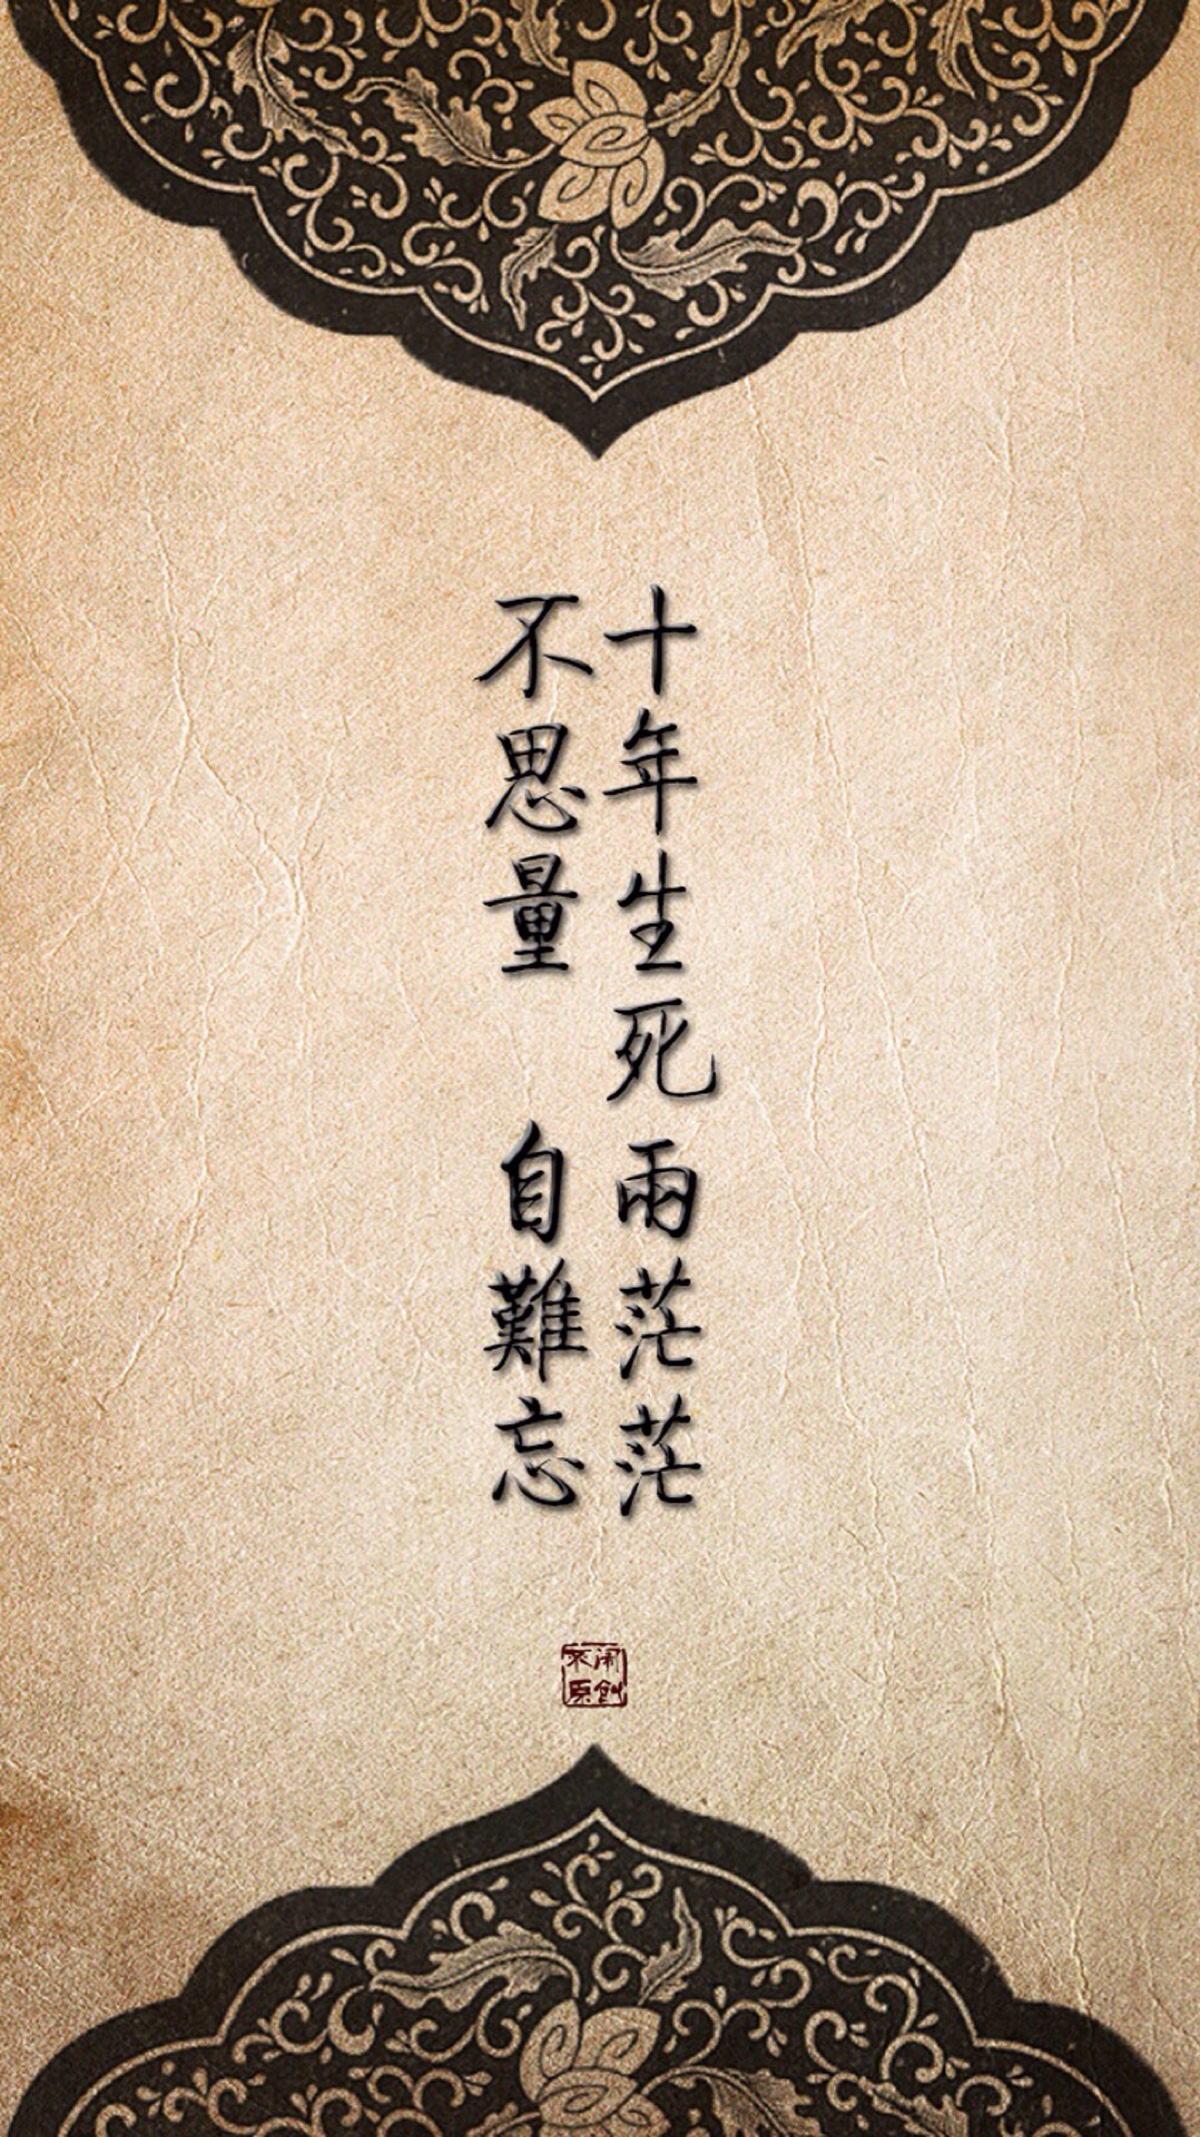 十年生死兩茫茫
不思量 自難忘